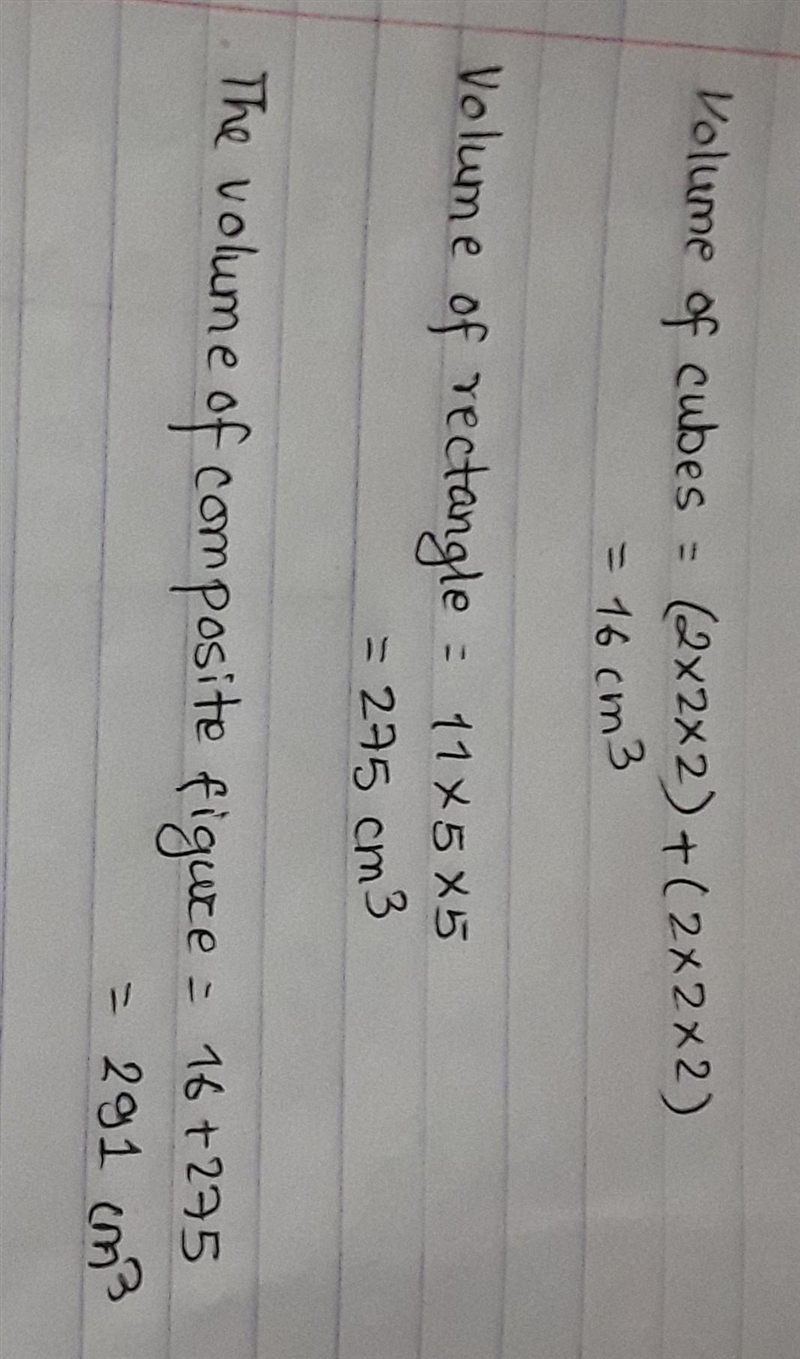 Volume of cubes = (2×2×2) + (2×2×2)
= 16 cm³
Volume of rectangle = 11 × 5 × 5
= 275 cm³
The volume of composite figure = 16 + 275
= 291 cm³